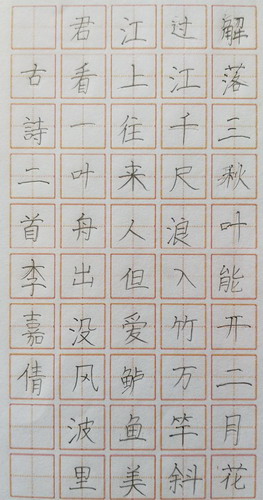 解落三秋叶能开二月花
过江千尺浪入竹万竿斜
江上往来人但爱鲈鱼美
君看一叶舟出没风波里
古詩二首李嘉倩